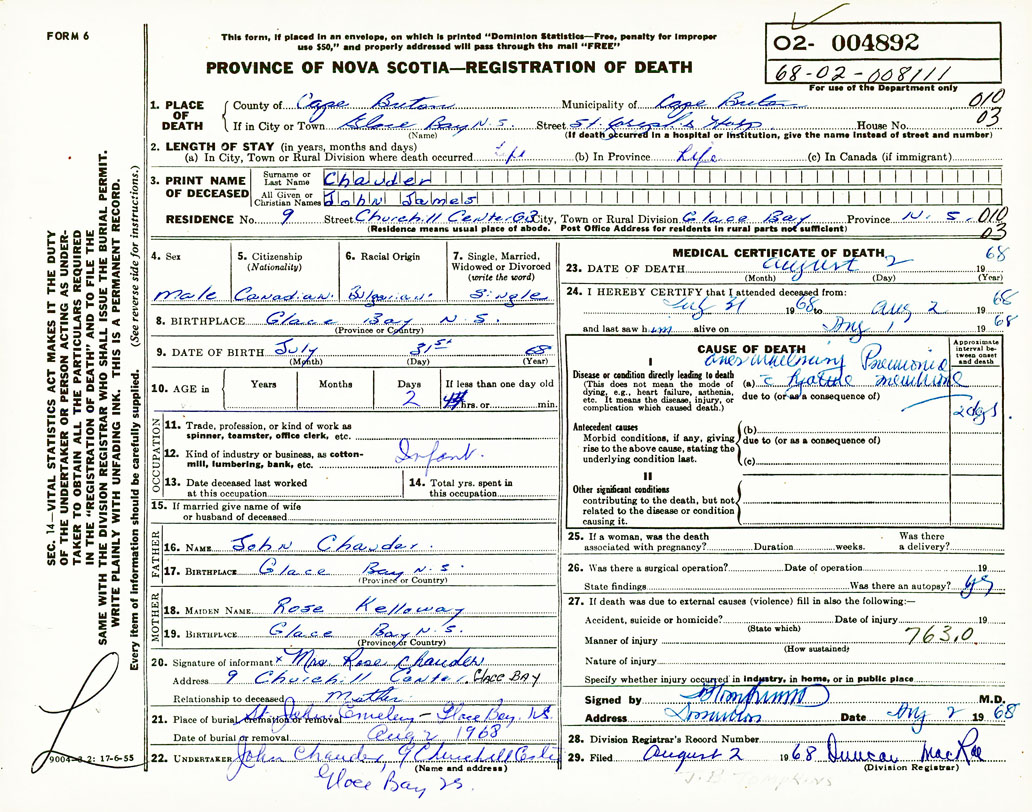 FORM 6
This form, if placed in an envelope, on which is printed "Dominion Statistics—Free, penalty for improper
use $50," and properly addressed will pass through the mail "FREE"
PROVINCE OF NOVA SCOTIA—REGISTRATION OF DEATH
02- 004892
68-02-008111
For use of the Department only
1. PLACE OF DEATH
County of Cape Breton Municipality of Cape Breton 010
If in City or Town Glace Bay N.S. Street St. Joseph's Hosp House No. 03
(Name) (If death occurred in a hospital or institution, give the name instead of street and number)
2. LENGTH OF STAY (in years, months and days)
(a) In City, Town or Rural Division where death occurred Life (b) In Province Life (c) In Canada (if immigrant)
3. PRINT NAME OF DECEASED
Surname or Last Name Chander
All Given or Christian Names John James
RESIDENCE No. 9 Street Churchill Center City, Town or Rural Division Glace Bay Province N.S. 010
(Residence means usual place of abode. Post Office Address for residents in rural parts not sufficient) 03
4. Sex
male
5. Citizenship
(Nationality)
Canadian
6. Racial Origin
7. Single, Married,
Widowed or Divorced
(write the word)
Single
8. BIRTHPLACE Glace Bay N.S.
(Province or Country)
9. DATE OF BIRTH July 31st 68
(Month) (Day) (Year)
10. AGE in
Years Months Days If less than one day old
2 hrs. or min.
OCCUPATION
11. Trade, profession, or kind of work as
spinner, teamster, office clerk, etc.
12. Kind of industry or business, as cotton-
mill, lumbering, bank, etc. Infant.
13. Date deceased last worked
at this occupation
14. Total yrs. spent in
this occupation
15. If married give name of wife
or husband of deceased
FATHER
16. NAME John Chander.
17. BIRTHPLACE Glace Bay N.S.
(Province or Country)
MOTHER
18. MAIDEN NAME Rose Kelloway
19. BIRTHPLACE Glace Bay N.S.
(Province or Country)
20. Signature of informant x Mrs Rose Chander
Address 9 Churchill Center. GLACE BAY
Relationship to deceased Mother
21. Place of burial, cremation or removal St. John Cemetery - Glace Bay, NS.
Date of burial or removal Aug 2 1968
22. UNDERTAKER John Chander, 9 Churchill
(Name and address)
Glace Bay
MEDICAL CERTIFICATE OF DEATH
23. DATE OF DEATH August 2 19 68
(Month) (Day) (Year)
24. I HEREBY CERTIFY that I attended deceased from:
July 31 1968 to Aug 2 19 68
and last saw him alive on Aug 1 19 68
CAUSE OF DEATH
Approximate interval between onset and death
I
Disease or condition directly leading to death
(This does not mean the mode of
dying, e.g., heart failure, asthenia,
etc. It means the disease, injury, or
complication which caused death.)
Pneumonia
(a) Hyaline membrane
due to (or as a consequence of)
2 dys.
Antecedent causes
Morbid conditions, if any, giving
rise to the above cause, stating the
underlying condition last.
(b)
due to (or as a consequence of)
(c)
II
Other significant conditions
contributing to the death, but not
related to the disease or condition
causing it.
25. If a woman, was the death
associated with pregnancy? Duration weeks. Was there a delivery?
26. Was there a surgical operation? Date of operation 19
State findings Was there an autopsy? yes
27. If death was due to external causes (violence) fill in also the following:—
Accident, suicide or homicide? Date of injury 19
(State which)
Manner of injury 763.0
(How sustained)
Nature of injury
Specify whether injury occurred in industry, in home, or in public place
Signed by M.D.
Address Dominion Date Aug 2 1968
28. Division Registrar's Record Number
29. Filed August 2 1968 Duncan MacRae
(Division Registrar)
J.B. TOMPKINS
SEC. 14—VITAL STATISTICS ACT MAKES IT THE DUTY
OF THE UNDERTAKER OR PERSON ACTING AS UNDER-
TAKER TO OBTAIN ALL THE PARTICULARS REQUIRED
IN THE "REGISTRATION OF DEATH" AND TO FILE THE
SAME WITH THE DIVISION REGISTRAR WHO SHALL ISSUE THE BURIAL PERMIT.
WRITE PLAINLY WITH UNFADING INK. THIS IS A PERMANENT RECORD.
Every item of information should be carefully supplied. (See reverse side for instructions.)
17-6-55